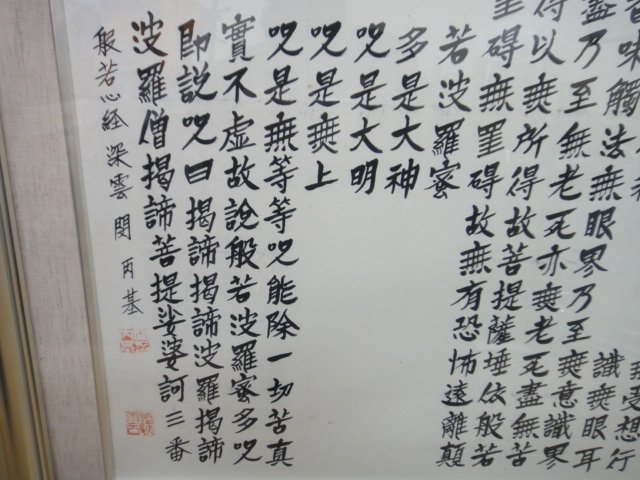 無受想行
識無眼耳
味觸法無眼界乃至無意識界
盡乃至無老死亦無老死盡無苦
得以無所得故菩提薩埵依般若
罣碍無罣碍故無有恐怖遠離顛
若波羅蜜
多是大神
呪是大明
呪是無上
呪是無等等呪能除一切苦真
實不虚故說般若波羅蜜多呪
即説呪曰揭諦揭諦波羅揭諦
波羅僧揭諦菩提娑婆訶三番
般若心経 深雲 閔丙基